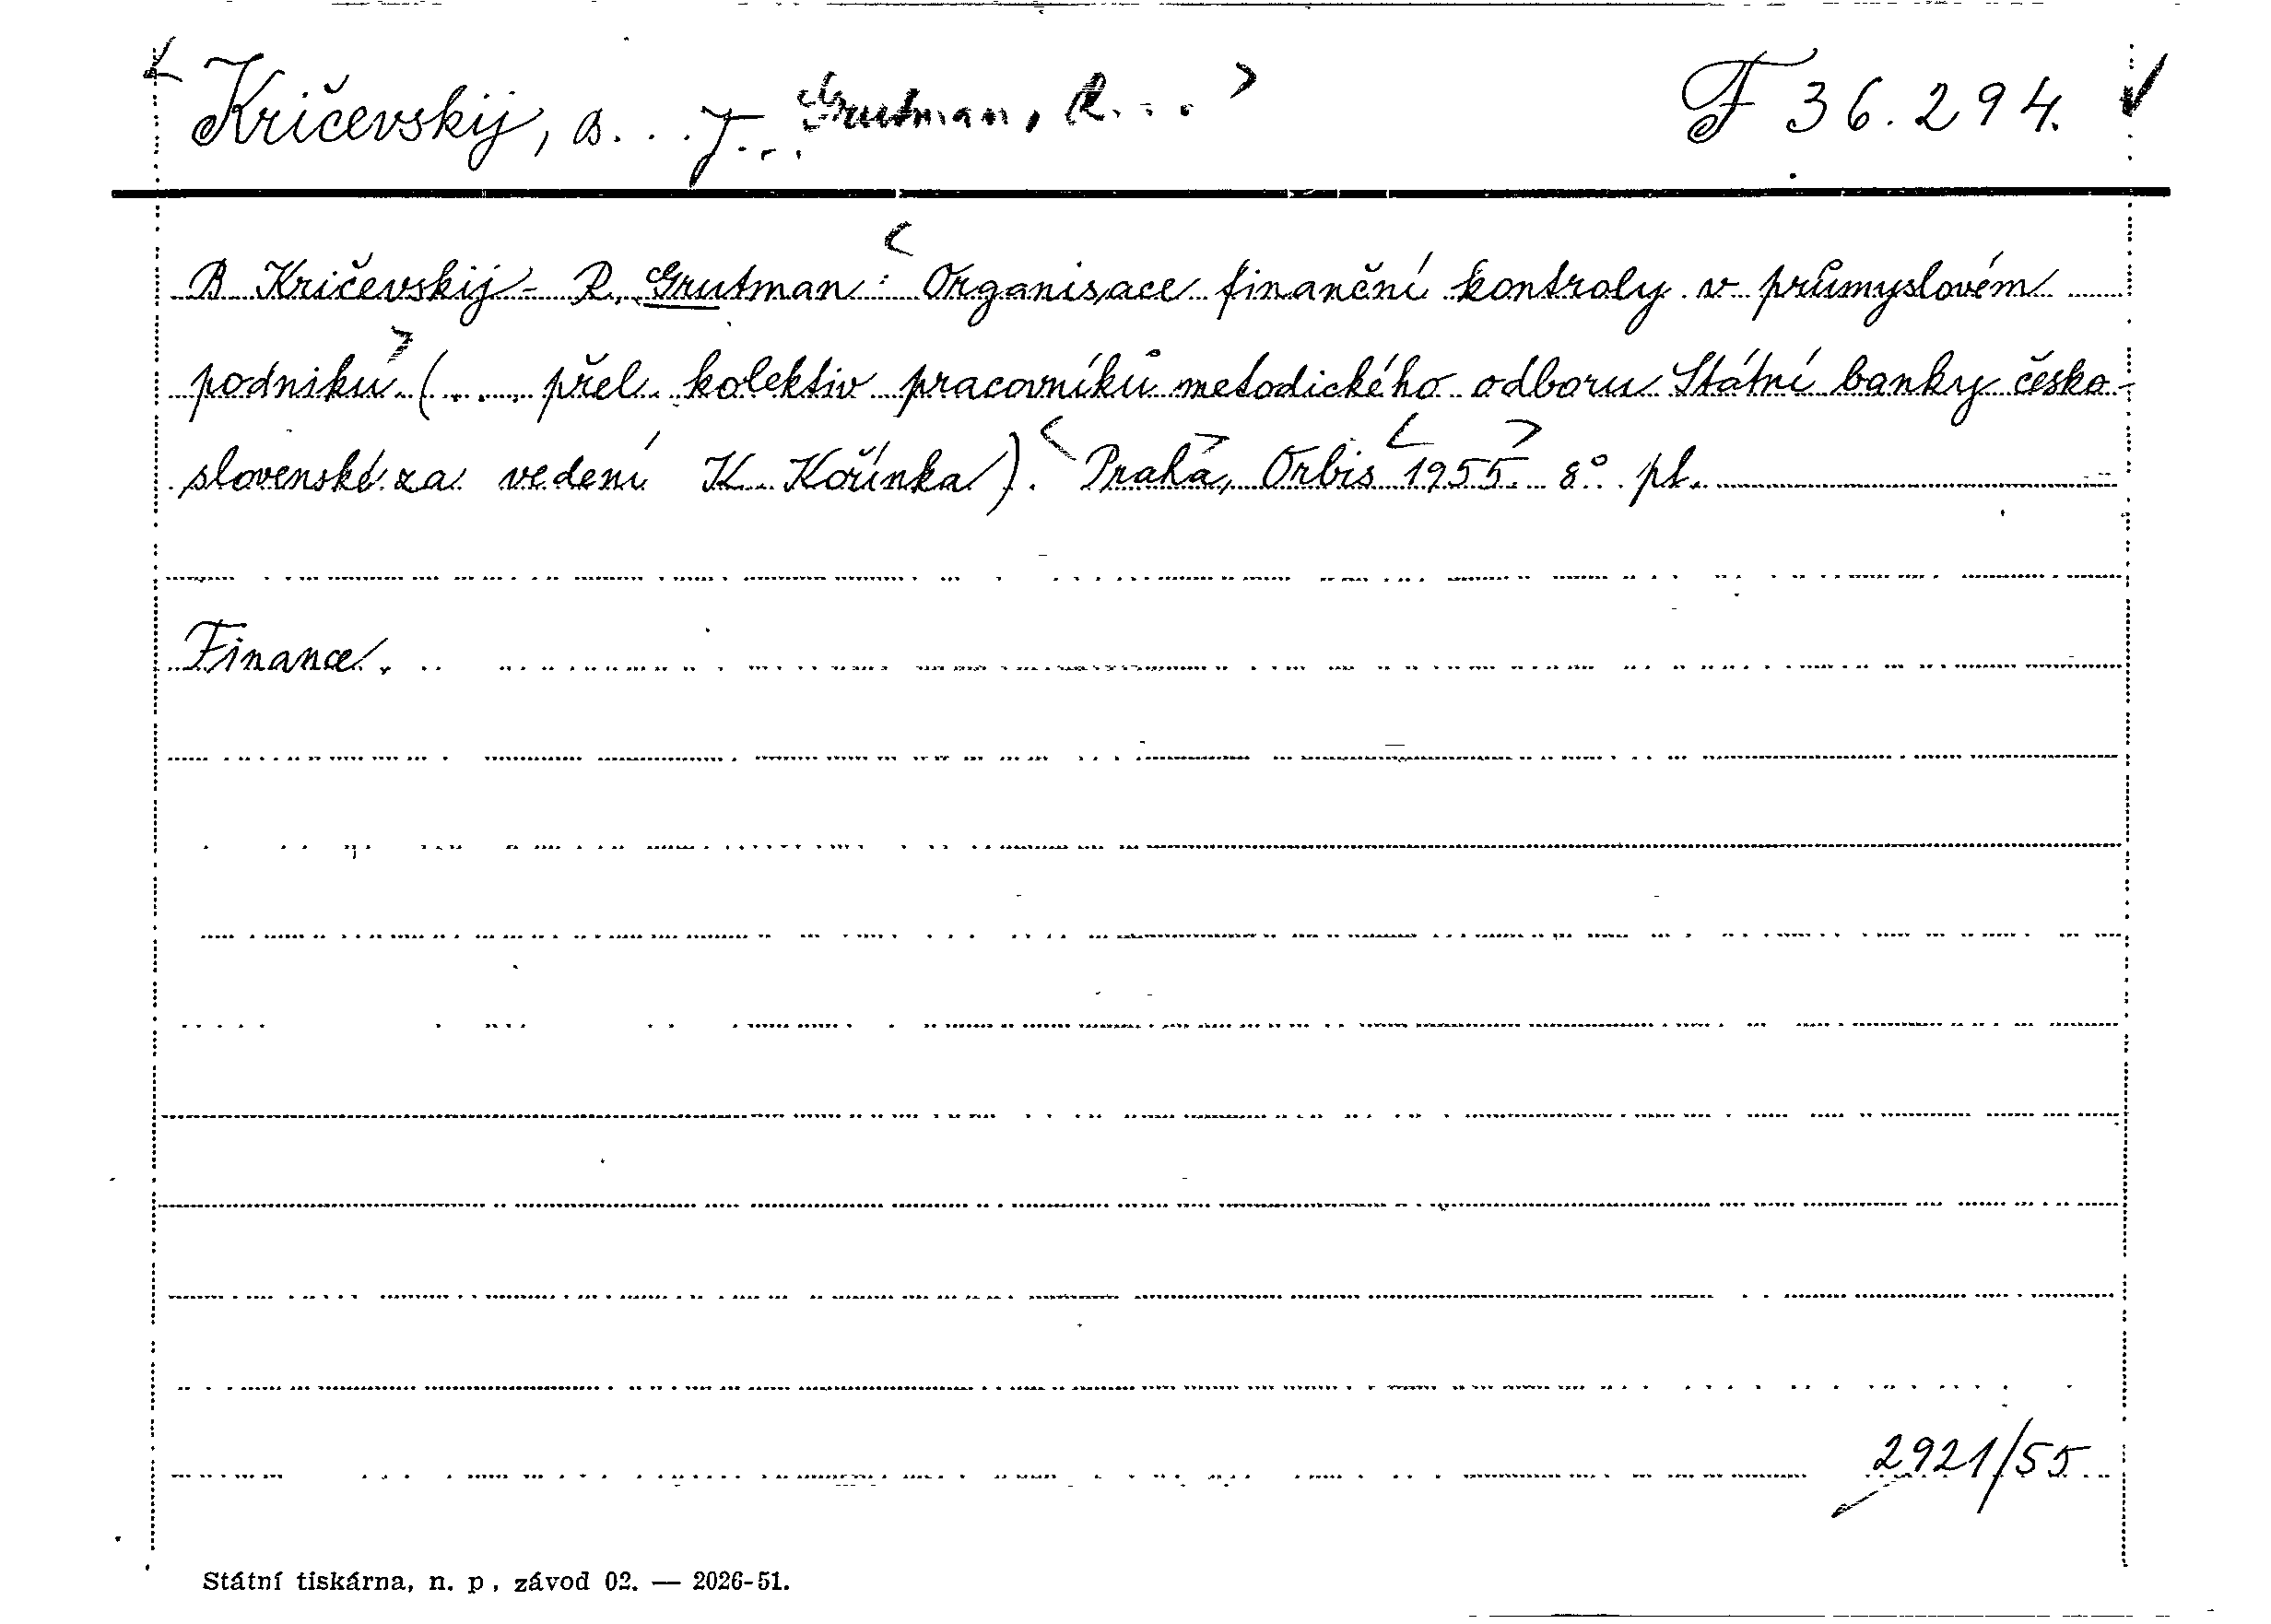 Kričevskij, B... J... Grutman, R... F 36.294.
B Kričevskij - R. Grutman: Organisace finanční kontroly v průmyslovém
podniku (... přel. kolektiv pracovníků metodického odboru Státní banky česko-
slovenské za vedení K. Kořínka). Praha, Orbis 1955. 8° pl.
Finance.
2921/55
Státní tiskárna, n. p., závod 02. — 2026-51.